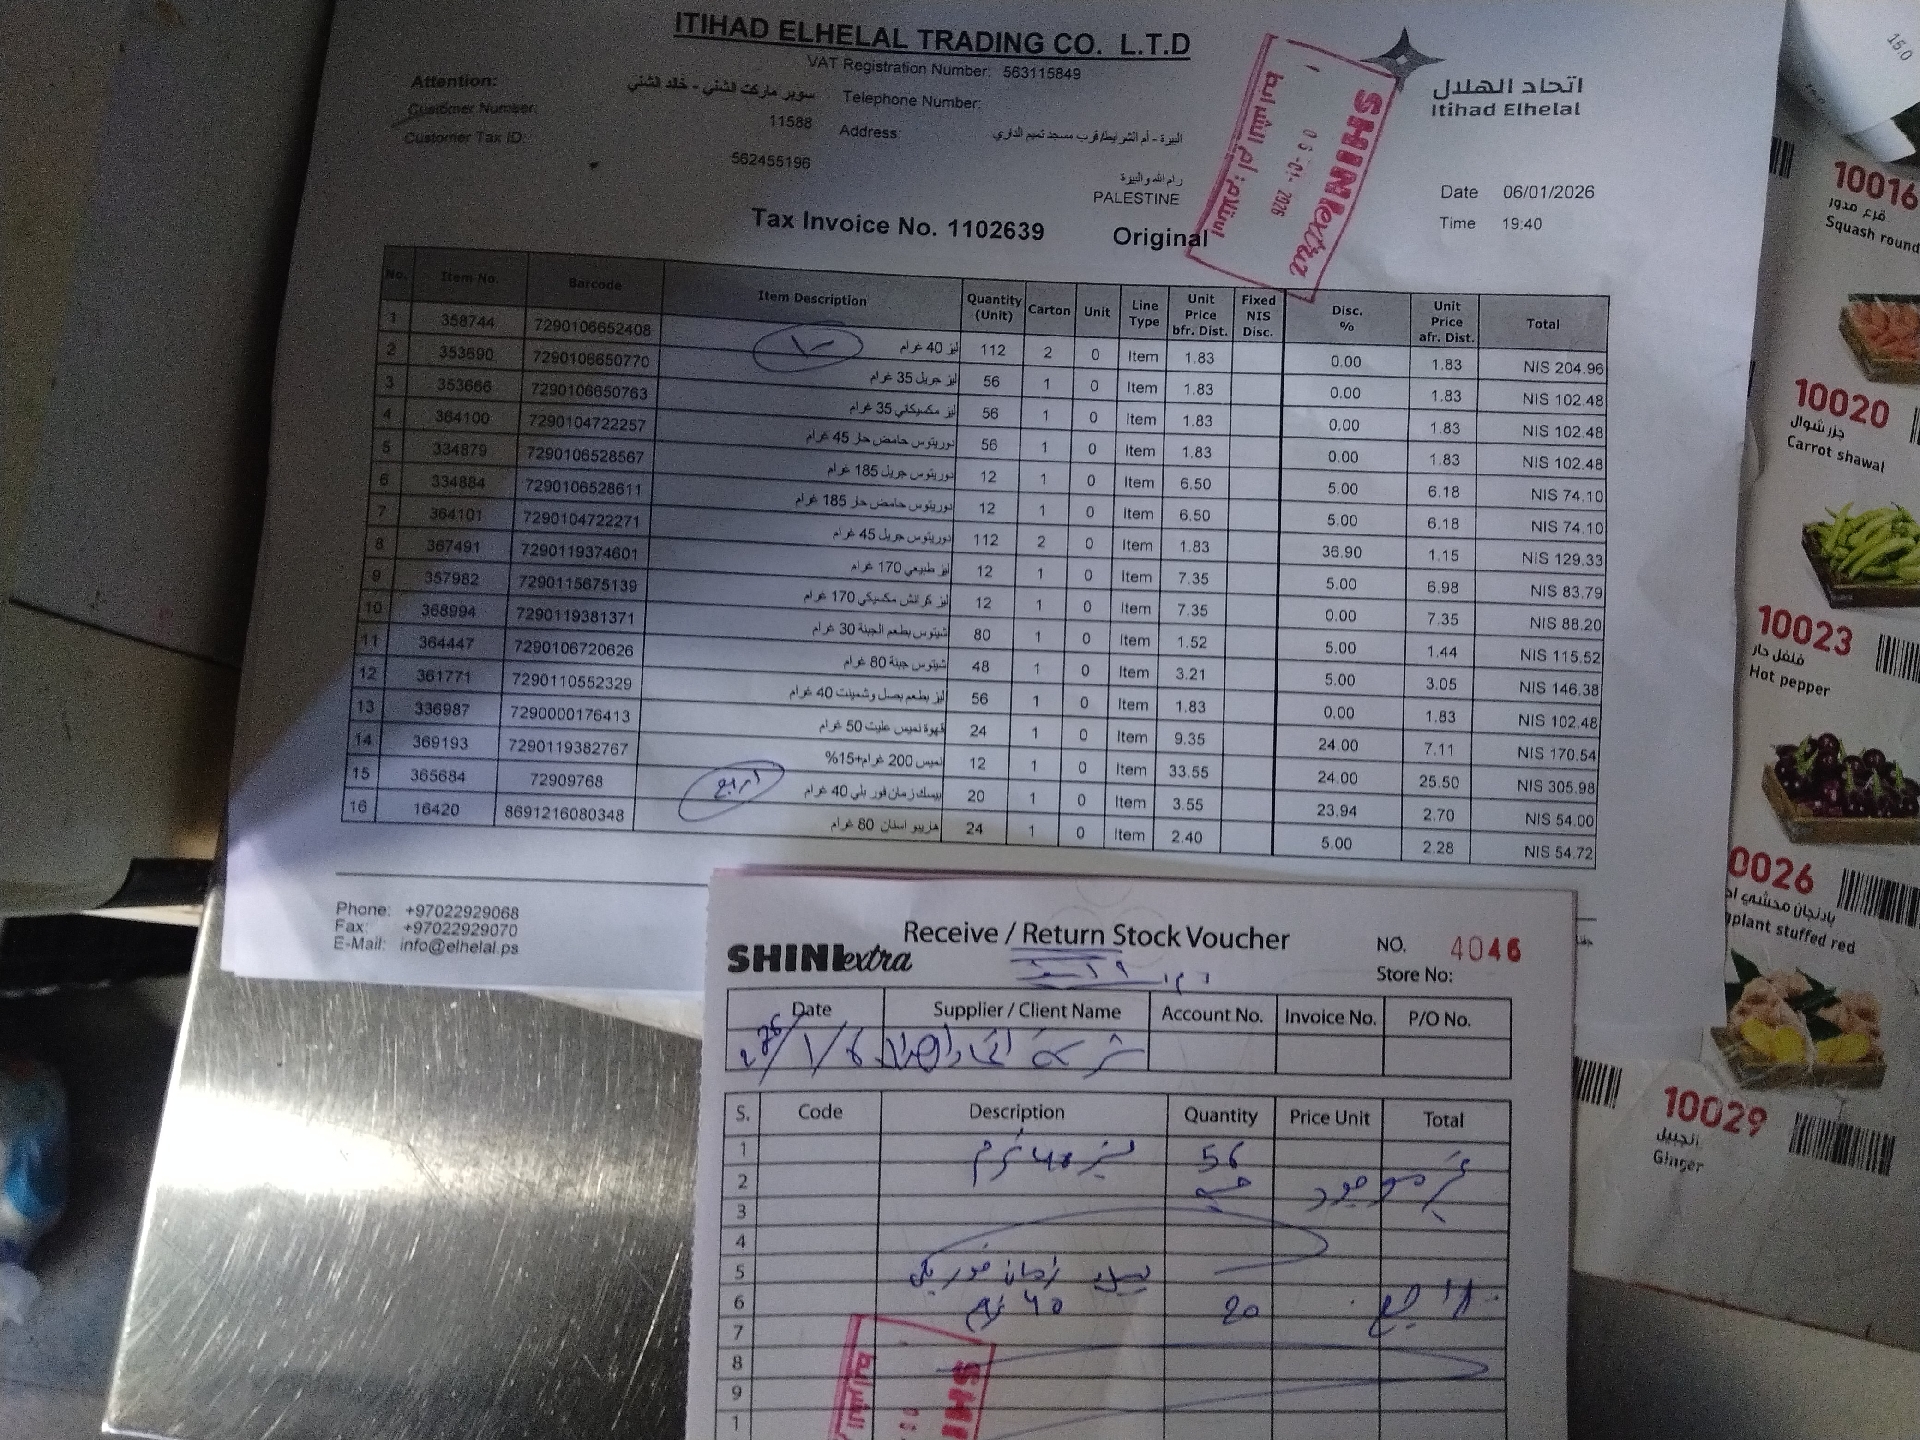 ITIHAD ELHELAL TRADING CO. L.T.D
VAT Registration Number: 563115849
اتحاد الهلال
Itihad Elhelal
Attention: سوبر ماركت الشني - خالد الشني
Telephone Number:
Customer Number: 11588
Address: البيرة - أم الشرايط/قرب مسجد تميم الداري
Customer Tax ID: 562455196
رام الله والبيرة
PALESTINE
Date 06/01/2026
Time 19:40
Tax Invoice No. 1102639 Original
SHINI extra
06-01-2026
استلام: ام الشرايط
No. Item No. Barcode Item Description Quantity (Unit) Carton Unit Line Type Unit Price bfr. Dist. Fixed NIS Disc. Disc. % Unit Price afr. Dist. Total
1 358744 7290106652408 ليز 40 غرام 112 2 0 Item 1.83 0.00 1.83 NIS 204.96
2 353690 7290106650770 ليز جريل 35 غرام 56 1 0 Item 1.83 0.00 1.83 NIS 102.48
3 353666 7290106650763 ليز مكسيكاني 35 غرام 56 1 0 Item 1.83 0.00 1.83 NIS 102.48
4 364100 7290104722257 دوريتوس حامض حار 45 غرام 56 1 0 Item 1.83 0.00 1.83 NIS 102.48
5 334879 7290106528567 دوريتوس جريل 185 غرام 12 1 0 Item 6.50 5.00 6.18 NIS 74.10
6 334884 7290106528611 دوريتوس حامض حار 185 غرام 12 1 0 Item 6.50 5.00 6.18 NIS 74.10
7 364101 7290104722271 دوريتوس جريل 45 غرام 112 2 0 Item 1.83 36.90 1.15 NIS 129.33
8 367491 7290119374601 ليز طبيعي 170 غرام 12 1 0 Item 7.35 5.00 6.98 NIS 83.79
9 357982 7290115675139 ليز كرانش مكسيكي 170 غرام 12 1 0 Item 7.35 0.00 7.35 NIS 88.20
10 368994 7290119381371 شيتوس بطعم الجبنة 30 غرام 80 1 0 Item 1.52 5.00 1.44 NIS 115.52
11 364447 7290106720626 شيتوس جبنة 80 غرام 48 1 0 Item 3.21 5.00 3.05 NIS 146.38
12 361771 7290110552329 ليز بطعم بصل وشمينت 40 غرام 56 1 0 Item 1.83 0.00 1.83 NIS 102.48
13 336987 7290000176413 قهوة نميس عليت 50 غرام 24 1 0 Item 9.35 24.00 7.11 NIS 170.54
14 369193 7290119382767 نميس 200 غرام+15% 12 1 0 Item 33.55 24.00 25.50 NIS 305.98
15 365684 72909768 بيسك زمان فور بلي 40 غرام 20 1 0 Item 3.55 23.94 2.70 NIS 54.00
16 16420 8691216080348 هاريبو اسنان 80 غرام 24 1 0 Item 2.40 5.00 2.28 NIS 54.72
Phone: +97022929068
Fax: +97022929070
E-Mail: info@elhelal.ps
Receive / Return Stock Voucher
SHINI extra
NO. 4046
Store No:
Date Supplier / Client Name Account No. Invoice No. P/O No.
2026/1/6 شركة اتحاد الهلال
S. Code Description Quantity Price Unit Total
1 ليز 40 غرام 56
2 حبه غير موجود
3
4
5 بيسك زمان فور بلي
6 40 غرام 20 ارجاع
7
8
9
1
SHINI
الشرايط
15.0
10016
قرع مدور
Squash round
10020
جزر شوال
Carrot shawal
10023
فلفل حار
Hot pepper
0026
باذنجان محشي
plant stuffed red
10029
زنجبيل
Ginger